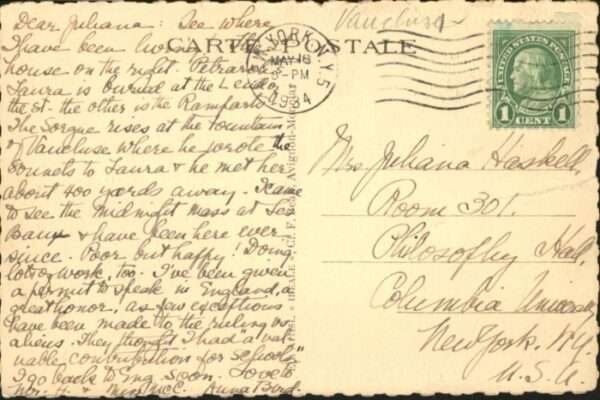 Dear Juliana: See where
I have been living - the
house on the right. Petrarch's
Laura is buried at the L end of
the st. the other is the Ramparts
The Sorgue rises at the fountain
of Vaucluse where he wrote the
Sonnets to Laura & he met her
about 400 yards away. I came
to see the midnight mass at Les
Baux & have been here ever
since. Poor but happy! Doing
lots of work, too. I've been given
a permit to speak in England, a
great honor, as few exceptions
have been made to the ruling vs
aliens. They thought I had "a val-
uable contribution for schools"
I go back to Eng. soon. Love to
Mr. H. & Miss McC. Anna Bird.
CARTE POSTALE
Vaucluse
NEW YORK, N.Y. 5
MAY 18
PM
1934
UNITED STATES POSTAGE
1 CENT 1
Avignon-Monclar
Mrs. Juliana Haskell,
Room 301.
Philosophy Hall,
Columbia University
New York. N.Y.
U.S.A.